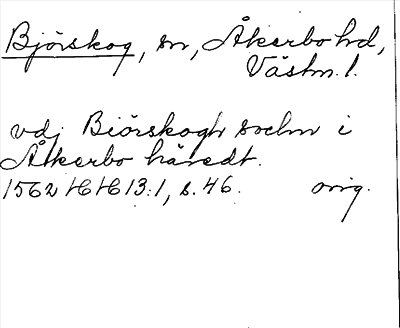 Björskog, sn, Åkerbo hd,
Västm. l.
vdj Biörskogh sochn i
Åkerbo häredt.
1562 HH 13:1, s. 46. orig.